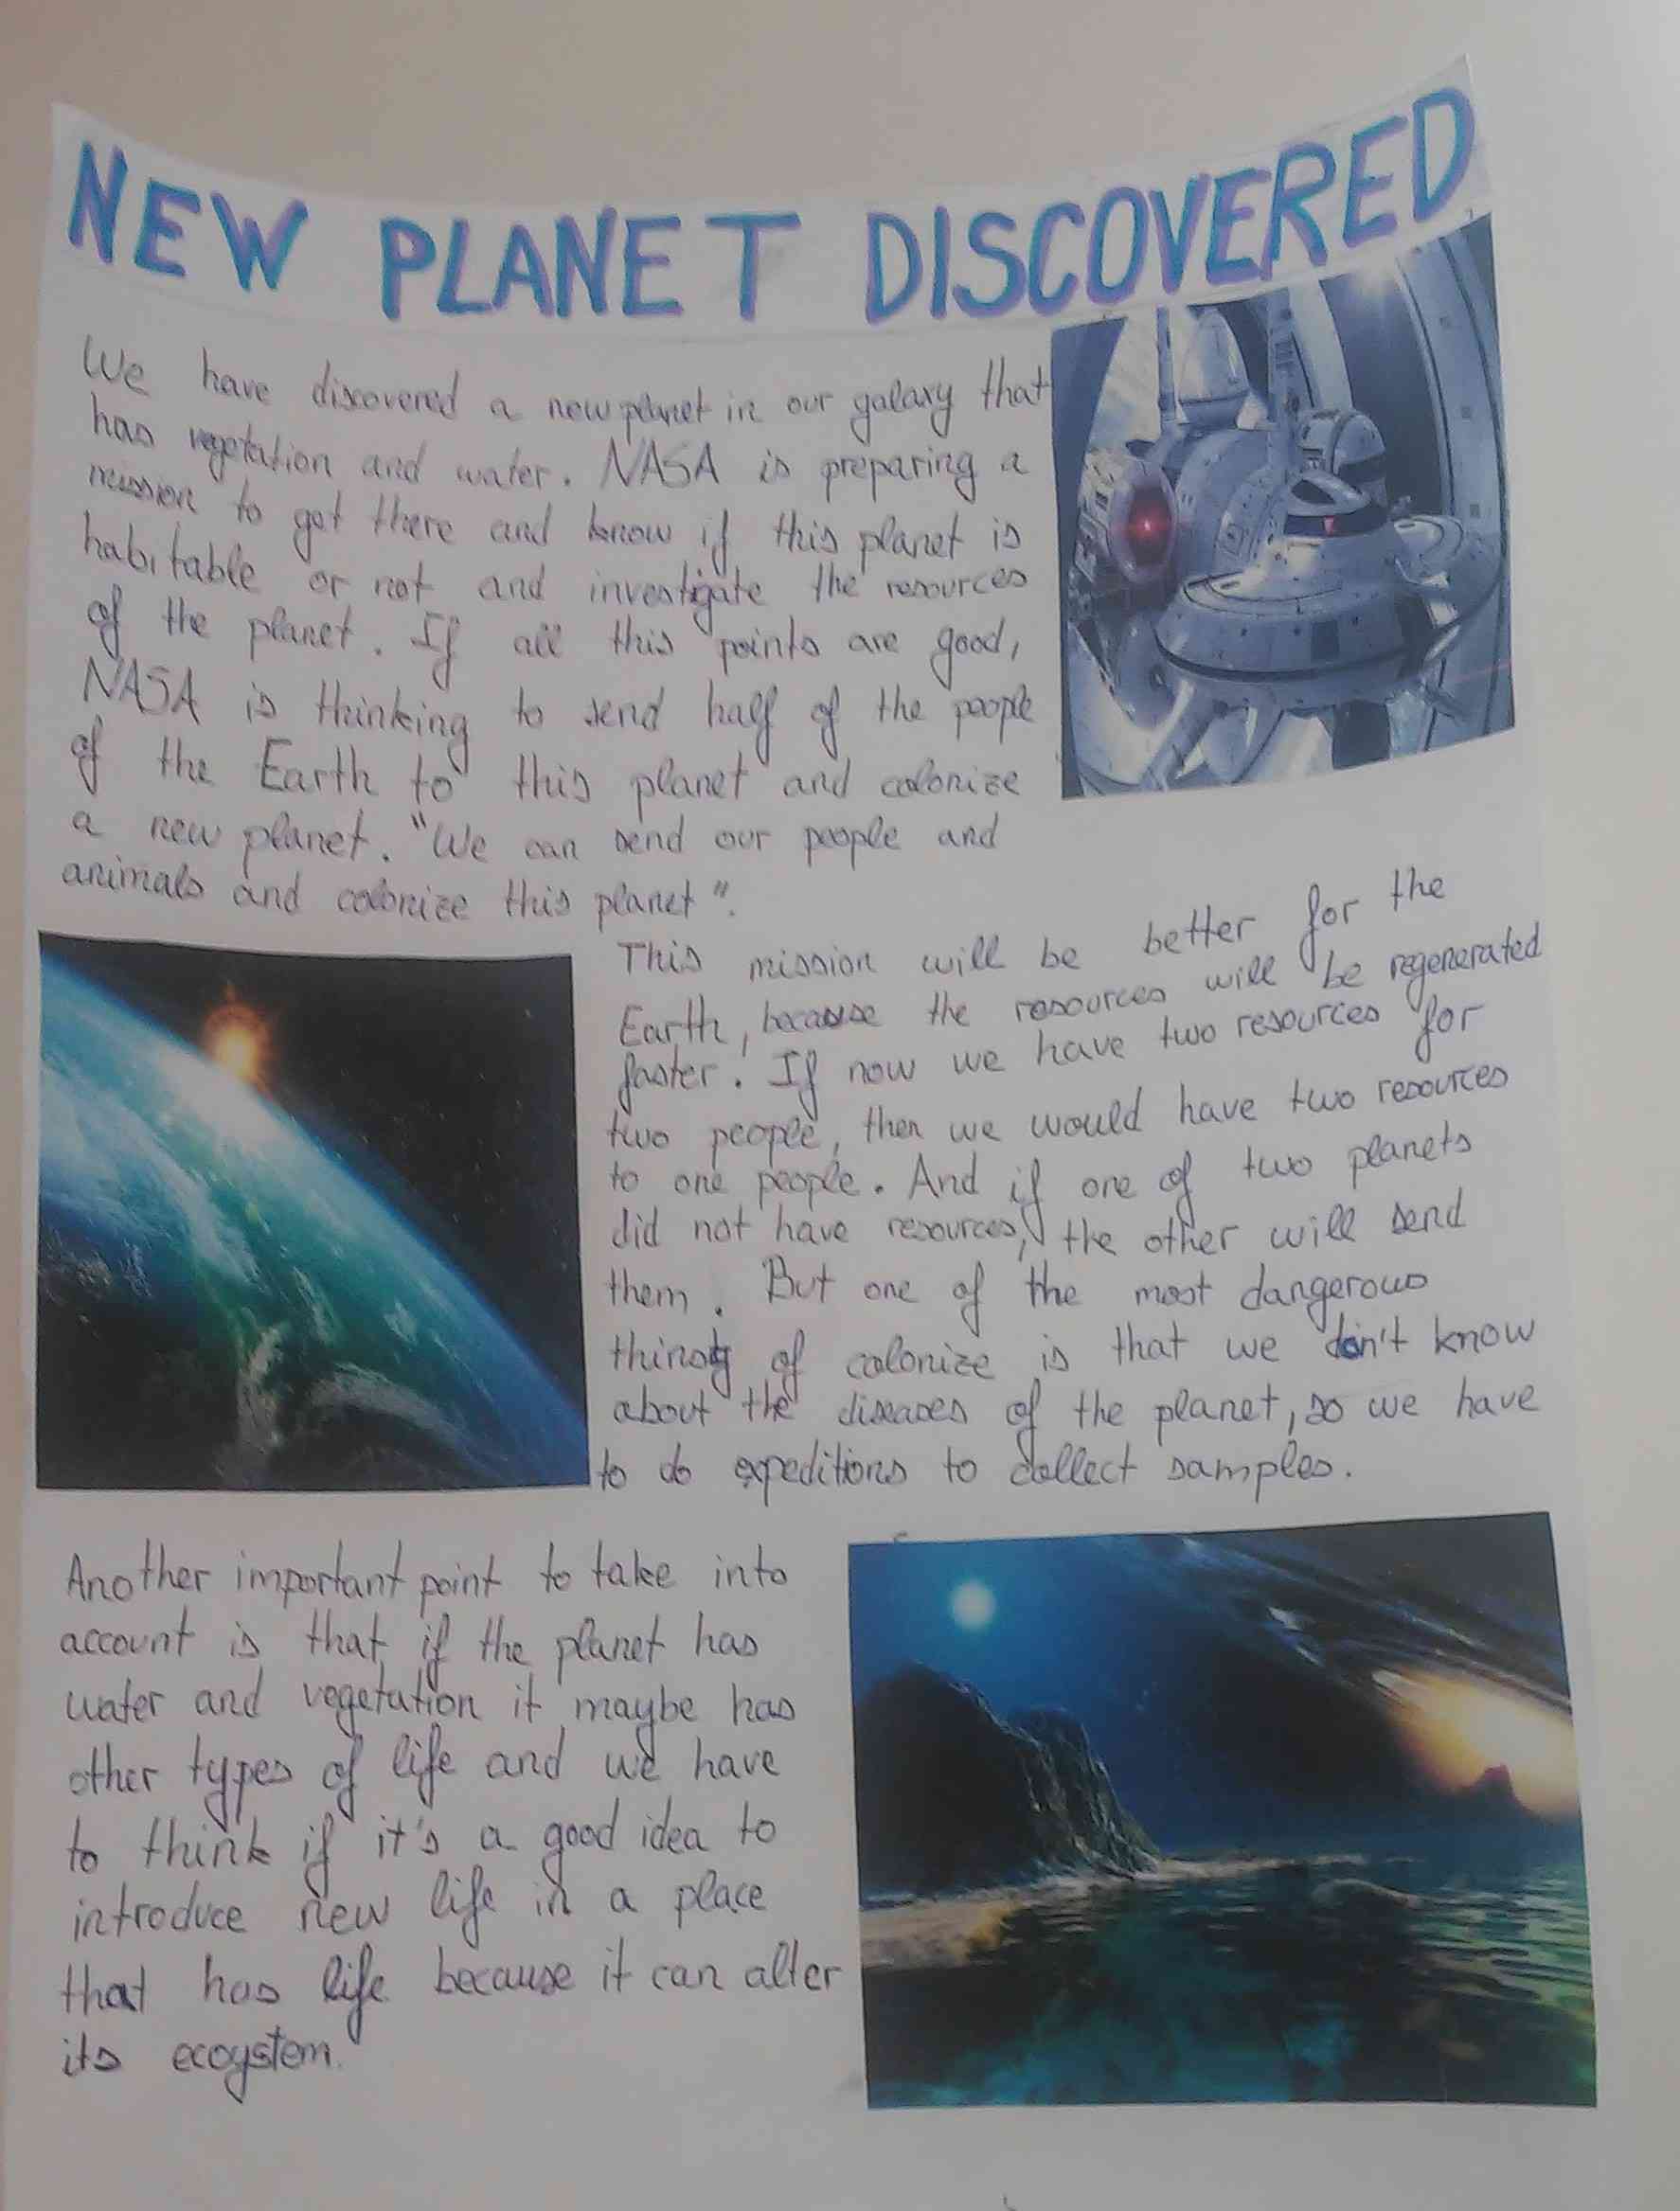 NEW PLANET DISCOVERED
We have discovered a new planet in our galaxy that
has vegetation and water. NASA is preparing a
mission to get there and know if this planet is
habitable or not and investigate the resources
of the planet. If all this points are good,
NASA is thinking to send half of the people
of the Earth to this planet and colonize
a new planet. "We can send our people and
animals and colonize this planet".
This mission will be better for the
Earth, because the resources will be regenerated
faster. If now we have two resources for
two people, then we would have two resources
to one people. And if one of two planets
did not have resources, the other will send
them. But one of the most dangerous
of colonize is that we don't know
about the diseases of the planet, so we have
to do expeditions to collect samples.
Another important point to take into
account is that if the planet has
water and vegetation it maybe has
other types of life and we have
to think if it's a good idea to
introduce new life in a place
that has life because it can alter
its ecoystem.